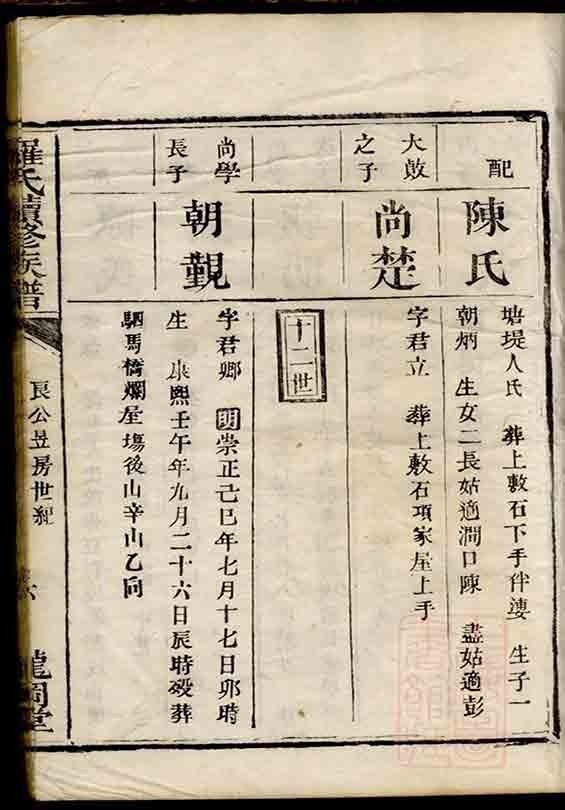 配
陳氏
塘堤人氏　葬上敷石下手伴婆　生子一
朝炳　生女二長姑適澗口陳　盡姑適彭
大啟
之子
尚楚
字君立　葬上敷石項家屋上手
十二世
尚學
長子
朝覲
字君鄉　明崇正己巳年七月十七日卯時
生　康熙壬午年九月二十六日辰時歿葬
駟馬橋爛屋塲後山辛山乙向
羅氏續修族譜
良公昱房世紀
六
龍岡堂